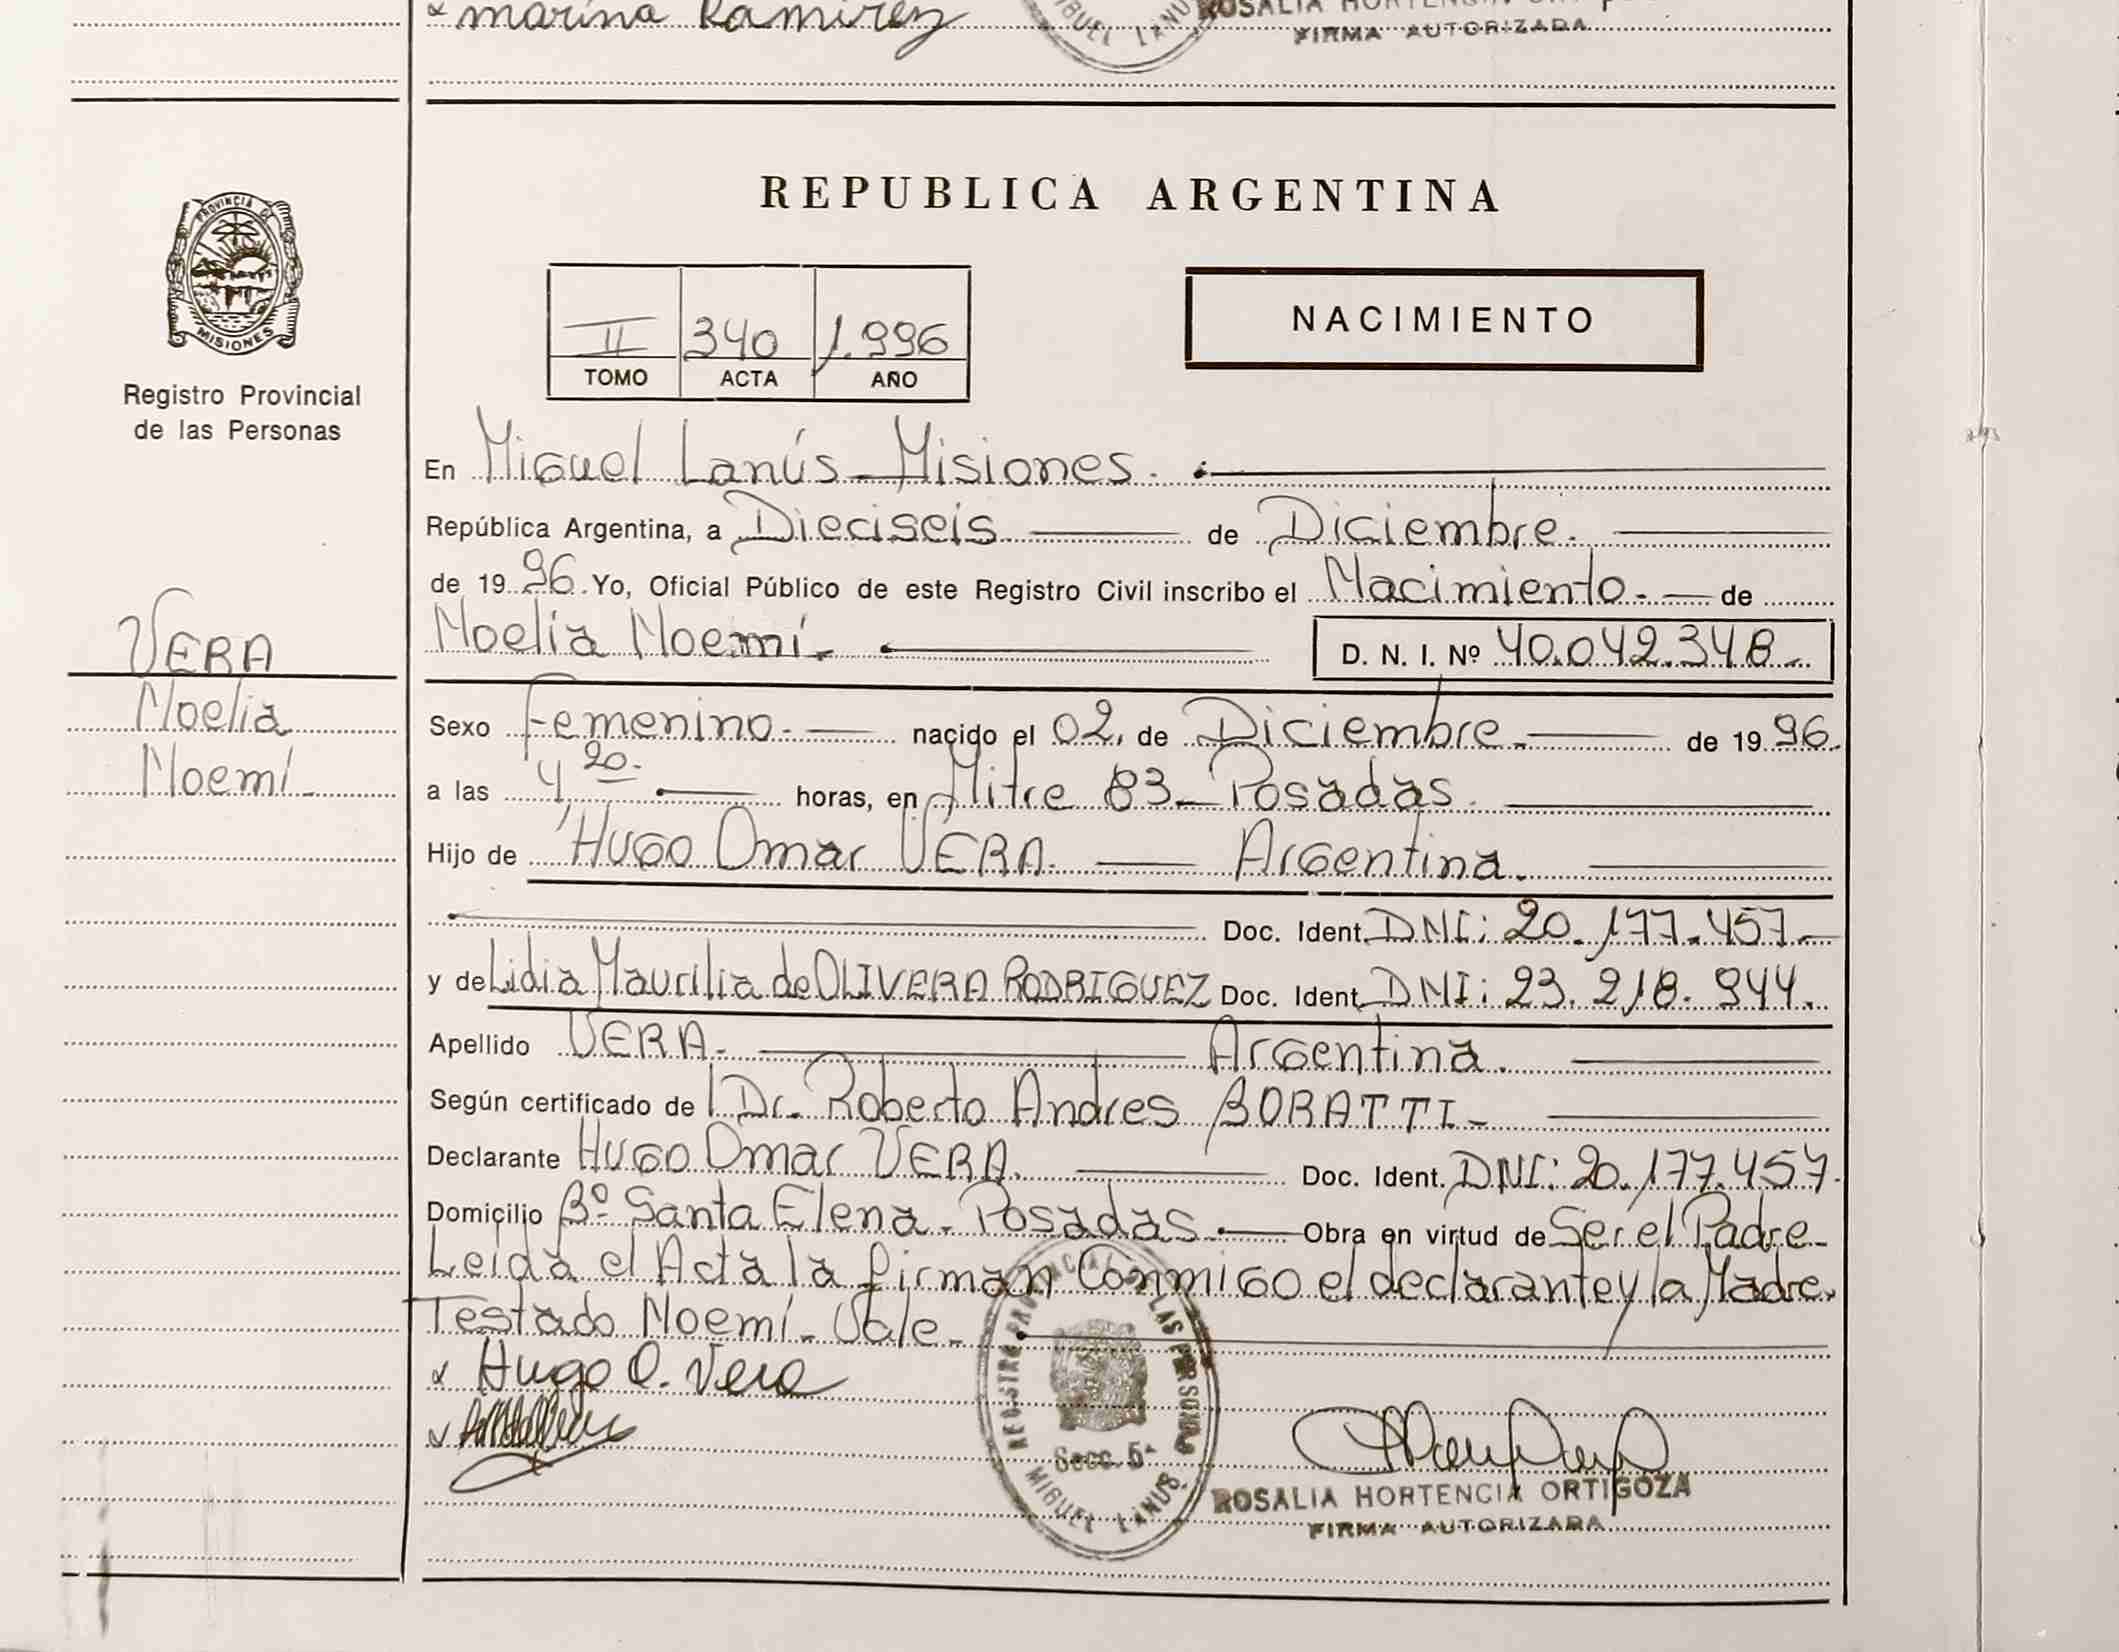 x marina Ramirez
MIGUEL LANUS
ROSALIA HORTENCIA
FIRMA AUTORIZADA
PROVINCIA DE
MISIONES
Registro Provincial
de las Personas
VERA
Noelia
Noemí
REPUBLICA ARGENTINA
II 340 1.996
TOMO ACTA AÑO
NACIMIENTO
En Miguel Lanús - Misiones.
República Argentina, a Dieciseis de Diciembre.
de 1996. Yo, Oficial Público de este Registro Civil inscribo el Nacimiento. de
Noelia Noemí. D. N. I. Nº 40.042.348
Sexo Femenino. nacido el 02, de Diciembre. de 1996.
a las 4,20. horas, en Mitre 83 - Posadas.
Hijo de Hugo Omar VERA. Argentina.
Doc. Ident. DNI: 20.177.457
y de Lidia Maurilia de OLIVERA RODRIGUEZ Doc. Ident. DNI: 23.218.944.
Apellido VERA. Argentina.
Según certificado de Dr. Roberto Andres BORATTI
Declarante Hugo Omar VERA. Doc. Ident. DNI: 20.177.457.
Domicilio Bº Santa Elena - Posadas. Obra en virtud de Ser el Padre
Leida el Acta la firman Conmigo el declarante y la Madre.
Testado Noemí - Vale.
x Hugo O. Vera
REGISTRO PROVINCIAL DE LAS PERSONAS
Secc. 5ª
MIGUEL LANUS
ROSALIA HORTENCIA ORTIGOZA
FIRMA AUTORIZADA